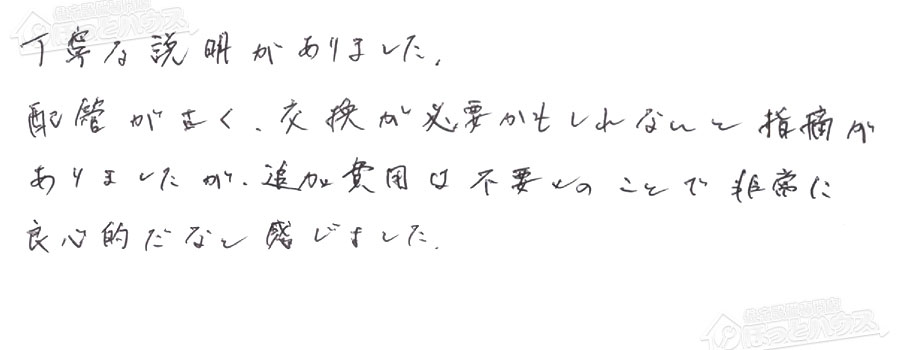 丁寧な説明がありました。
配管が古く、交換が必要かもしれないと指摘が
ありましたが、追加費用は不要とのことで非常に
良心的だなと感じました。
ほっとハウス
ほっとハウス